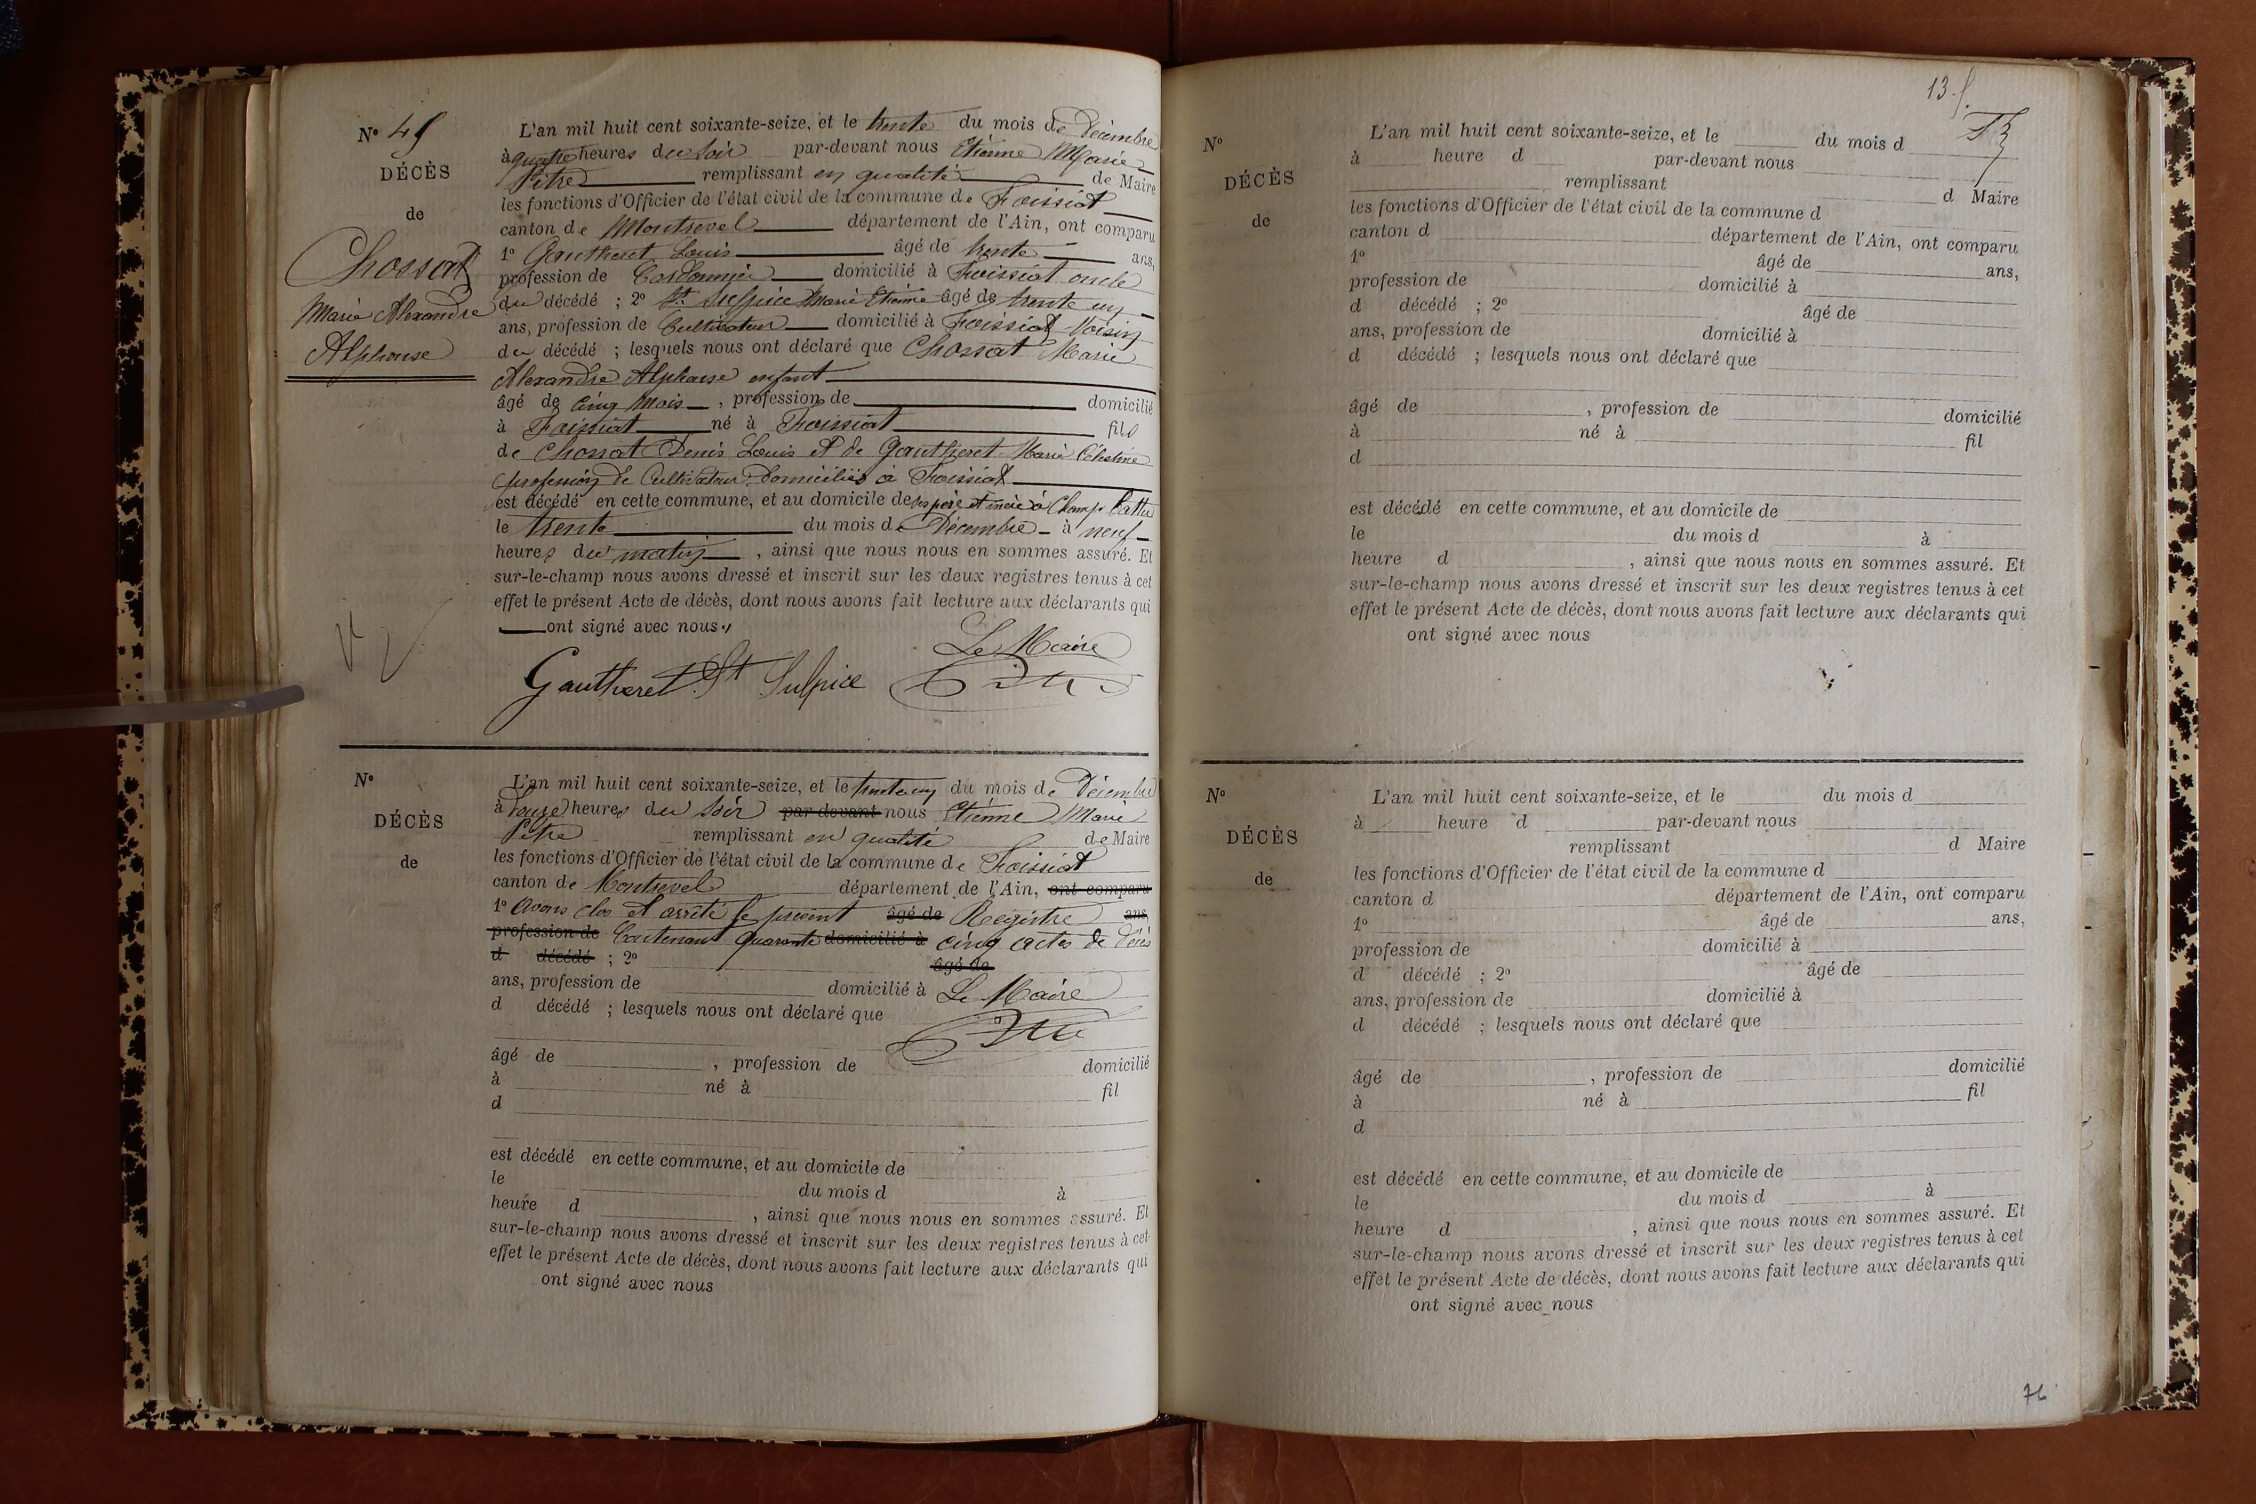 N° 45
DÉCÈS
de
Chossat
Marie Alexandre
Alphonse
L'an mil huit cent soixante-seize, et le trente du mois de Décembre
à quatre heures du soir par-devant nous Etienne Marie
Pitre remplissant en qualité de Maire
les fonctions d'Officier de l'état civil de la commune de Foissiat
canton de Montrevel département de l'Ain, ont comparu
1° Gautheret Louis âgé de trente ans,
profession de Cordonnier domicilié à Foissiat oncle
du décédé ; 2° St. Sulpice Marie Etienne âgé de trente un
ans, profession de Cultivateur domicilié à Foissiat voisin
du décédé ; lesquels nous ont déclaré que Chossat Marie
Alexandre Alphonse enfant
âgé de cinq mois, profession de domicilié
à Foissiat né à Foissiat fils
de Chossat Denis Louis et de Gautheret Marie Célestine
profession de Cultivateur domiciliés à Foissiat
est décédé en cette commune, et au domicile de ses père et mère à Champ Battu
le trente du mois de Décembre à neuf
heures du matin, ainsi que nous nous en sommes assuré. Et
sur-le-champ nous avons dressé et inscrit sur les deux registres tenus à cet
effet le présent Acte de décès, dont nous avons fait lecture aux déclarants qui
ont signé avec nous.
Le Maire
Gautheret St Sulpice Pitre
N°
DÉCÈS
de
L'an mil huit cent soixante-seize, et le trente un du mois de Décembre
à douze heures du soir par devant nous Etienne Marie
Pitre remplissant en qualité de Maire
les fonctions d'Officier de l'état civil de la commune de Foissiat
canton de Montrevel département de l'Ain, ont comparu
1° avons clos et arrêté le présent âgé de Registre ans,
profession de Contenant quarante domicilié à cinq actes de décès
d décédé ; 2° âgé de
ans, profession de domicilié à Le Maire
d décédé ; lesquels nous ont déclaré que
Pitre
âgé de , profession de domicilié
à né à fil
d
est décédé en cette commune, et au domicile de
le du mois d à
heure d , ainsi que nous nous en sommes assuré. Et
sur-le-champ nous avons dressé et inscrit sur les deux registres tenus à cet
effet le présent Acte de décès, dont nous avons fait lecture aux déclarants qui
ont signé avec nous
N°
DÉCÈS
de
L'an mil huit cent soixante-seize, et le du mois d
à heure d par-devant nous
remplissant d Maire
les fonctions d'Officier de l'état civil de la commune d
canton d département de l'Ain, ont comparu
1° âgé de ans,
profession de domicilié à
d décédé ; 2° âgé de
ans, profession de domicilié à
d décédé ; lesquels nous ont déclaré que
âgé de , profession de domicilié
à né à fil
d
est décédé en cette commune, et au domicile de
le du mois d à
heure d , ainsi que nous nous en sommes assuré. Et
sur-le-champ nous avons dressé et inscrit sur les deux registres tenus à cet
effet le présent Acte de décès, dont nous avons fait lecture aux déclarants qui
ont signé avec nous
N°
DÉCÈS
de
L'an mil huit cent soixante-seize, et le du mois d
à heure d par-devant nous
remplissant d Maire
les fonctions d'Officier de l'état civil de la commune d
canton d département de l'Ain, ont comparu
1° âgé de ans,
profession de domicilié à
d décédé ; 2° âgé de
ans, profession de domicilié à
d décédé ; lesquels nous ont déclaré que
âgé de , profession de domicilié
à né à fil
d
est décédé en cette commune, et au domicile de
le du mois d à
heure d , ainsi que nous nous en sommes assuré. Et
sur-le-champ nous avons dressé et inscrit sur les deux registres tenus à cet
effet le présent Acte de décès, dont nous avons fait lecture aux déclarants qui
ont signé avec nous
76